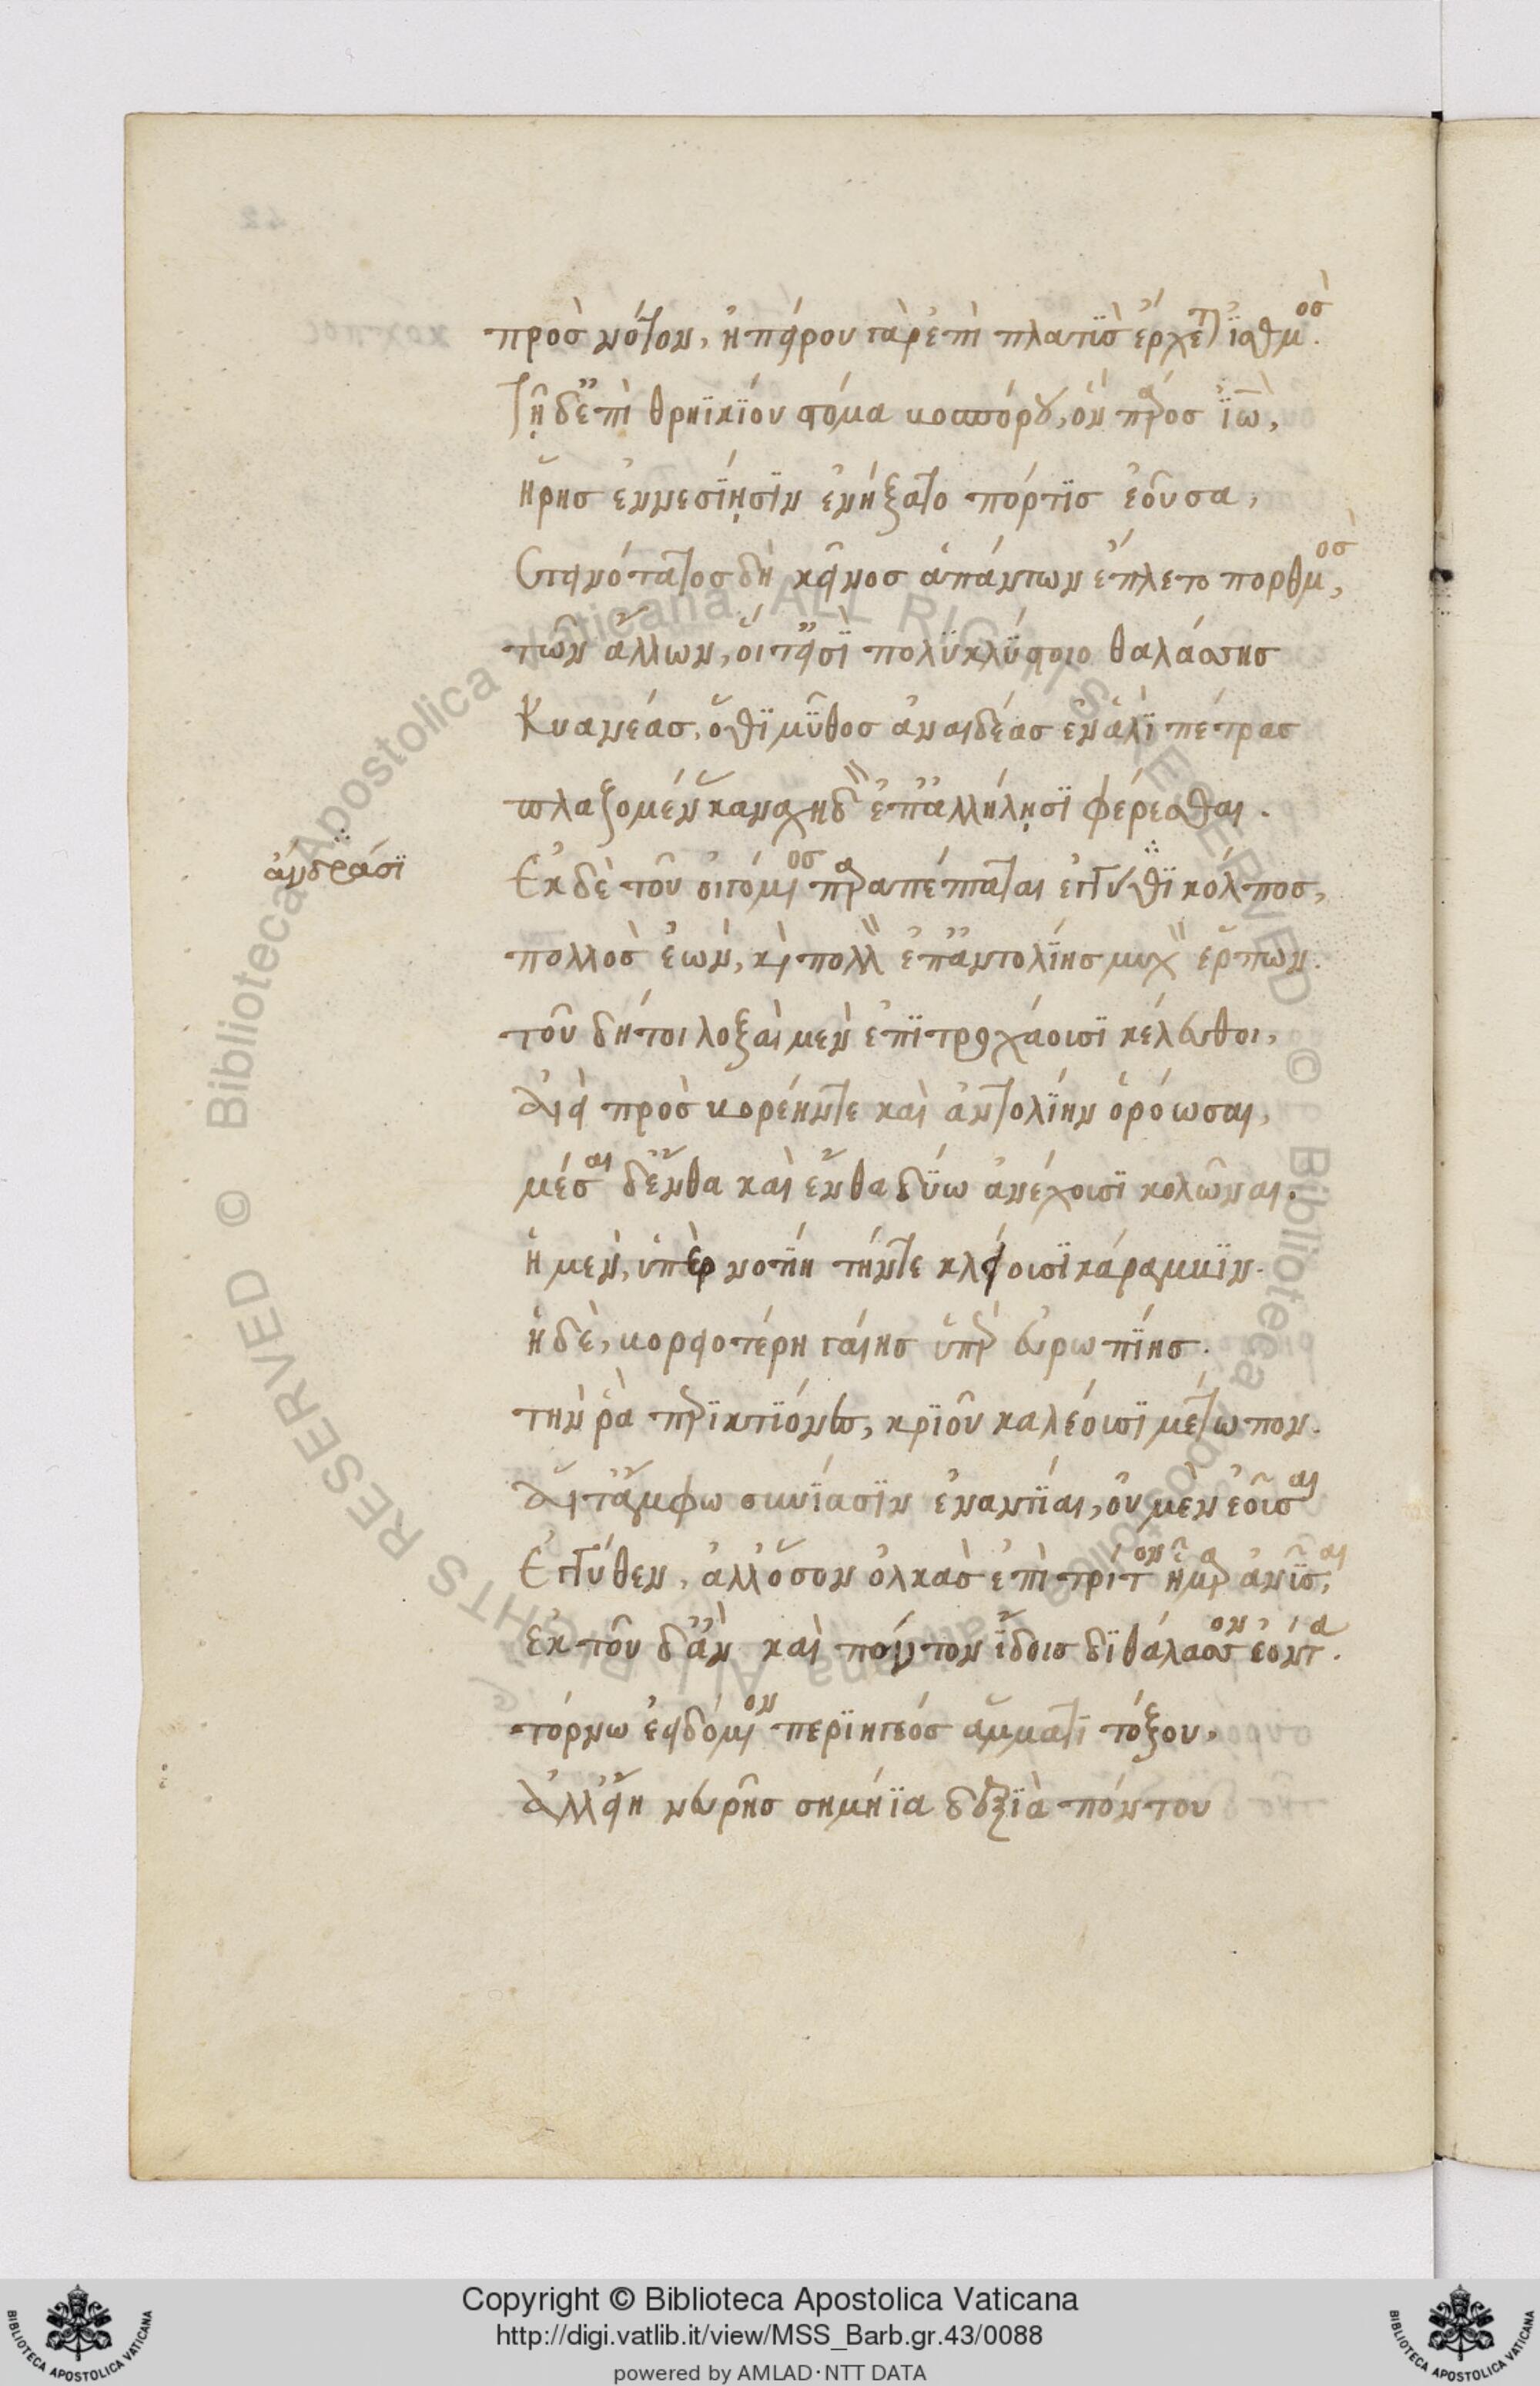 προς νότον, ἠπείρου γὰρ ἐπὶ πλατὺς ἔρχεται ἰσθμός.
τῇ δ' ἔπι θρηϊκίου στόμα βοσπόρου, ὃν πάρος ἰὼ,
ἥρης ἐννεσίῃσιν ἐνήξατο πόρτις ἐοῦσα,
Στεινότατος δὴ κεῖνος ἁπάντων ἔπλετο πορθμὸς,
τῶν ἄλλων, οἵ τ' εἰσὶ πολυκλύστοιο θαλάσσης
Κυανέας, ὅθι μῦθος ἀναιδέας εἰν ἁλὶ πέτρας
πλαζομένας καναχηδὸν ἐπ' ἀλλήλῃσι φέρεσθαι.
ἀνδράσι
Ἐκ δὲ τοῦ οἰγόμενος παραπέπταται ἐγγύθι κόλπος,
πολλὸς ἐὼν, καὶ πολλὸν ἐπ' ἀντολίης μυχὸν ἕρπων.
τοῦ δή τοι λοξαὶ μὲν ἐπιτροχάουσι κέλευθοι,
Αἰεὶ πρὸς βορέην τε καὶ ἀντολίην ὁρόωσαι,
μέσσαι δ' ἔνθα καὶ ἔνθα δύω ἀνέχουσι κολῶναι.
ἡ μὲν, ὑπὲρ νοτίη τήν τε κλείουσι κάραμβιν.
ἡ δὲ, βορειοτέρη γαίης ὑπὲρ εὐρωπίης.
τὴν ῥὰ περικτίονες, κριοῦ καλέουσι μέτωπον.
Αἵ τ' ἄμφω συνίασιν ἐναντίαι, οὐ μὲν ἐοῦσαι
Ἐγγύθεν, ἀλλ' ὅσον ὁλκὰς ἐπὶ τρίτον ἦμαρ ἀνύσσαι,
ἐκ τοῦ δ' ἂν καὶ πόντον ἴδοις διθάλασσον ἐόντα.
τόρνω ἐειδόμενον περιηγέος ἅμματι τόξου,
Ἀλλ' εἴη νευρῆς σημήϊα δεξιὰ πόντου
Copyright © Biblioteca Apostolica Vaticana
http://digi.vatlib.it/view/MSS_Barb.gr.43/0088
powered by AMLAD·NTT DATA